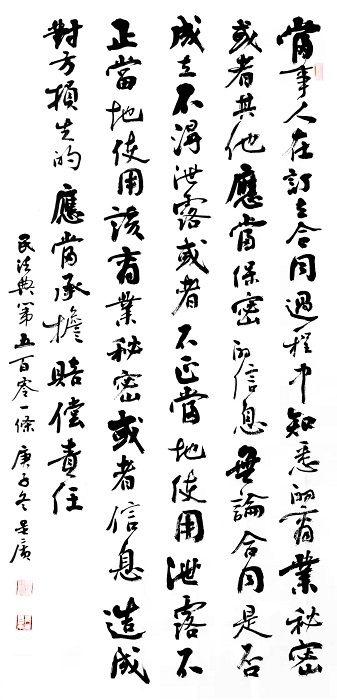 當事人在訂立合同過程中知悉的商業秘密
或者其他應當保密的信息無論合同是否
成立不得泄露或者不正當地使用泄露不
正當地使用該商業秘密或者信息造成
對方損失的應當承擔賠償責任
民法典第五百零一條 庚子冬